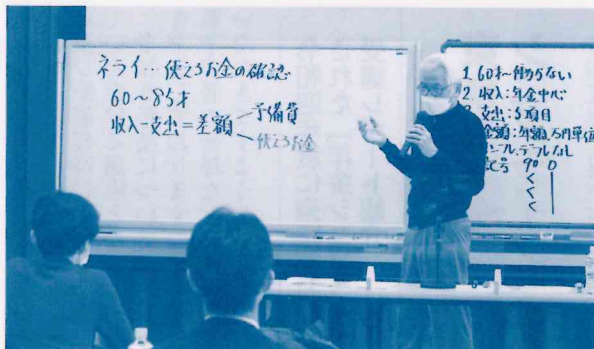 ネライ…使えるお金の確認
60～85才
収入－支出＝差額
予備費
使えるお金
1. 60才～働かない
2. 収入：年金中心
支出：5項目
金額：年額、万円単位
デフレなし
記号 90 0